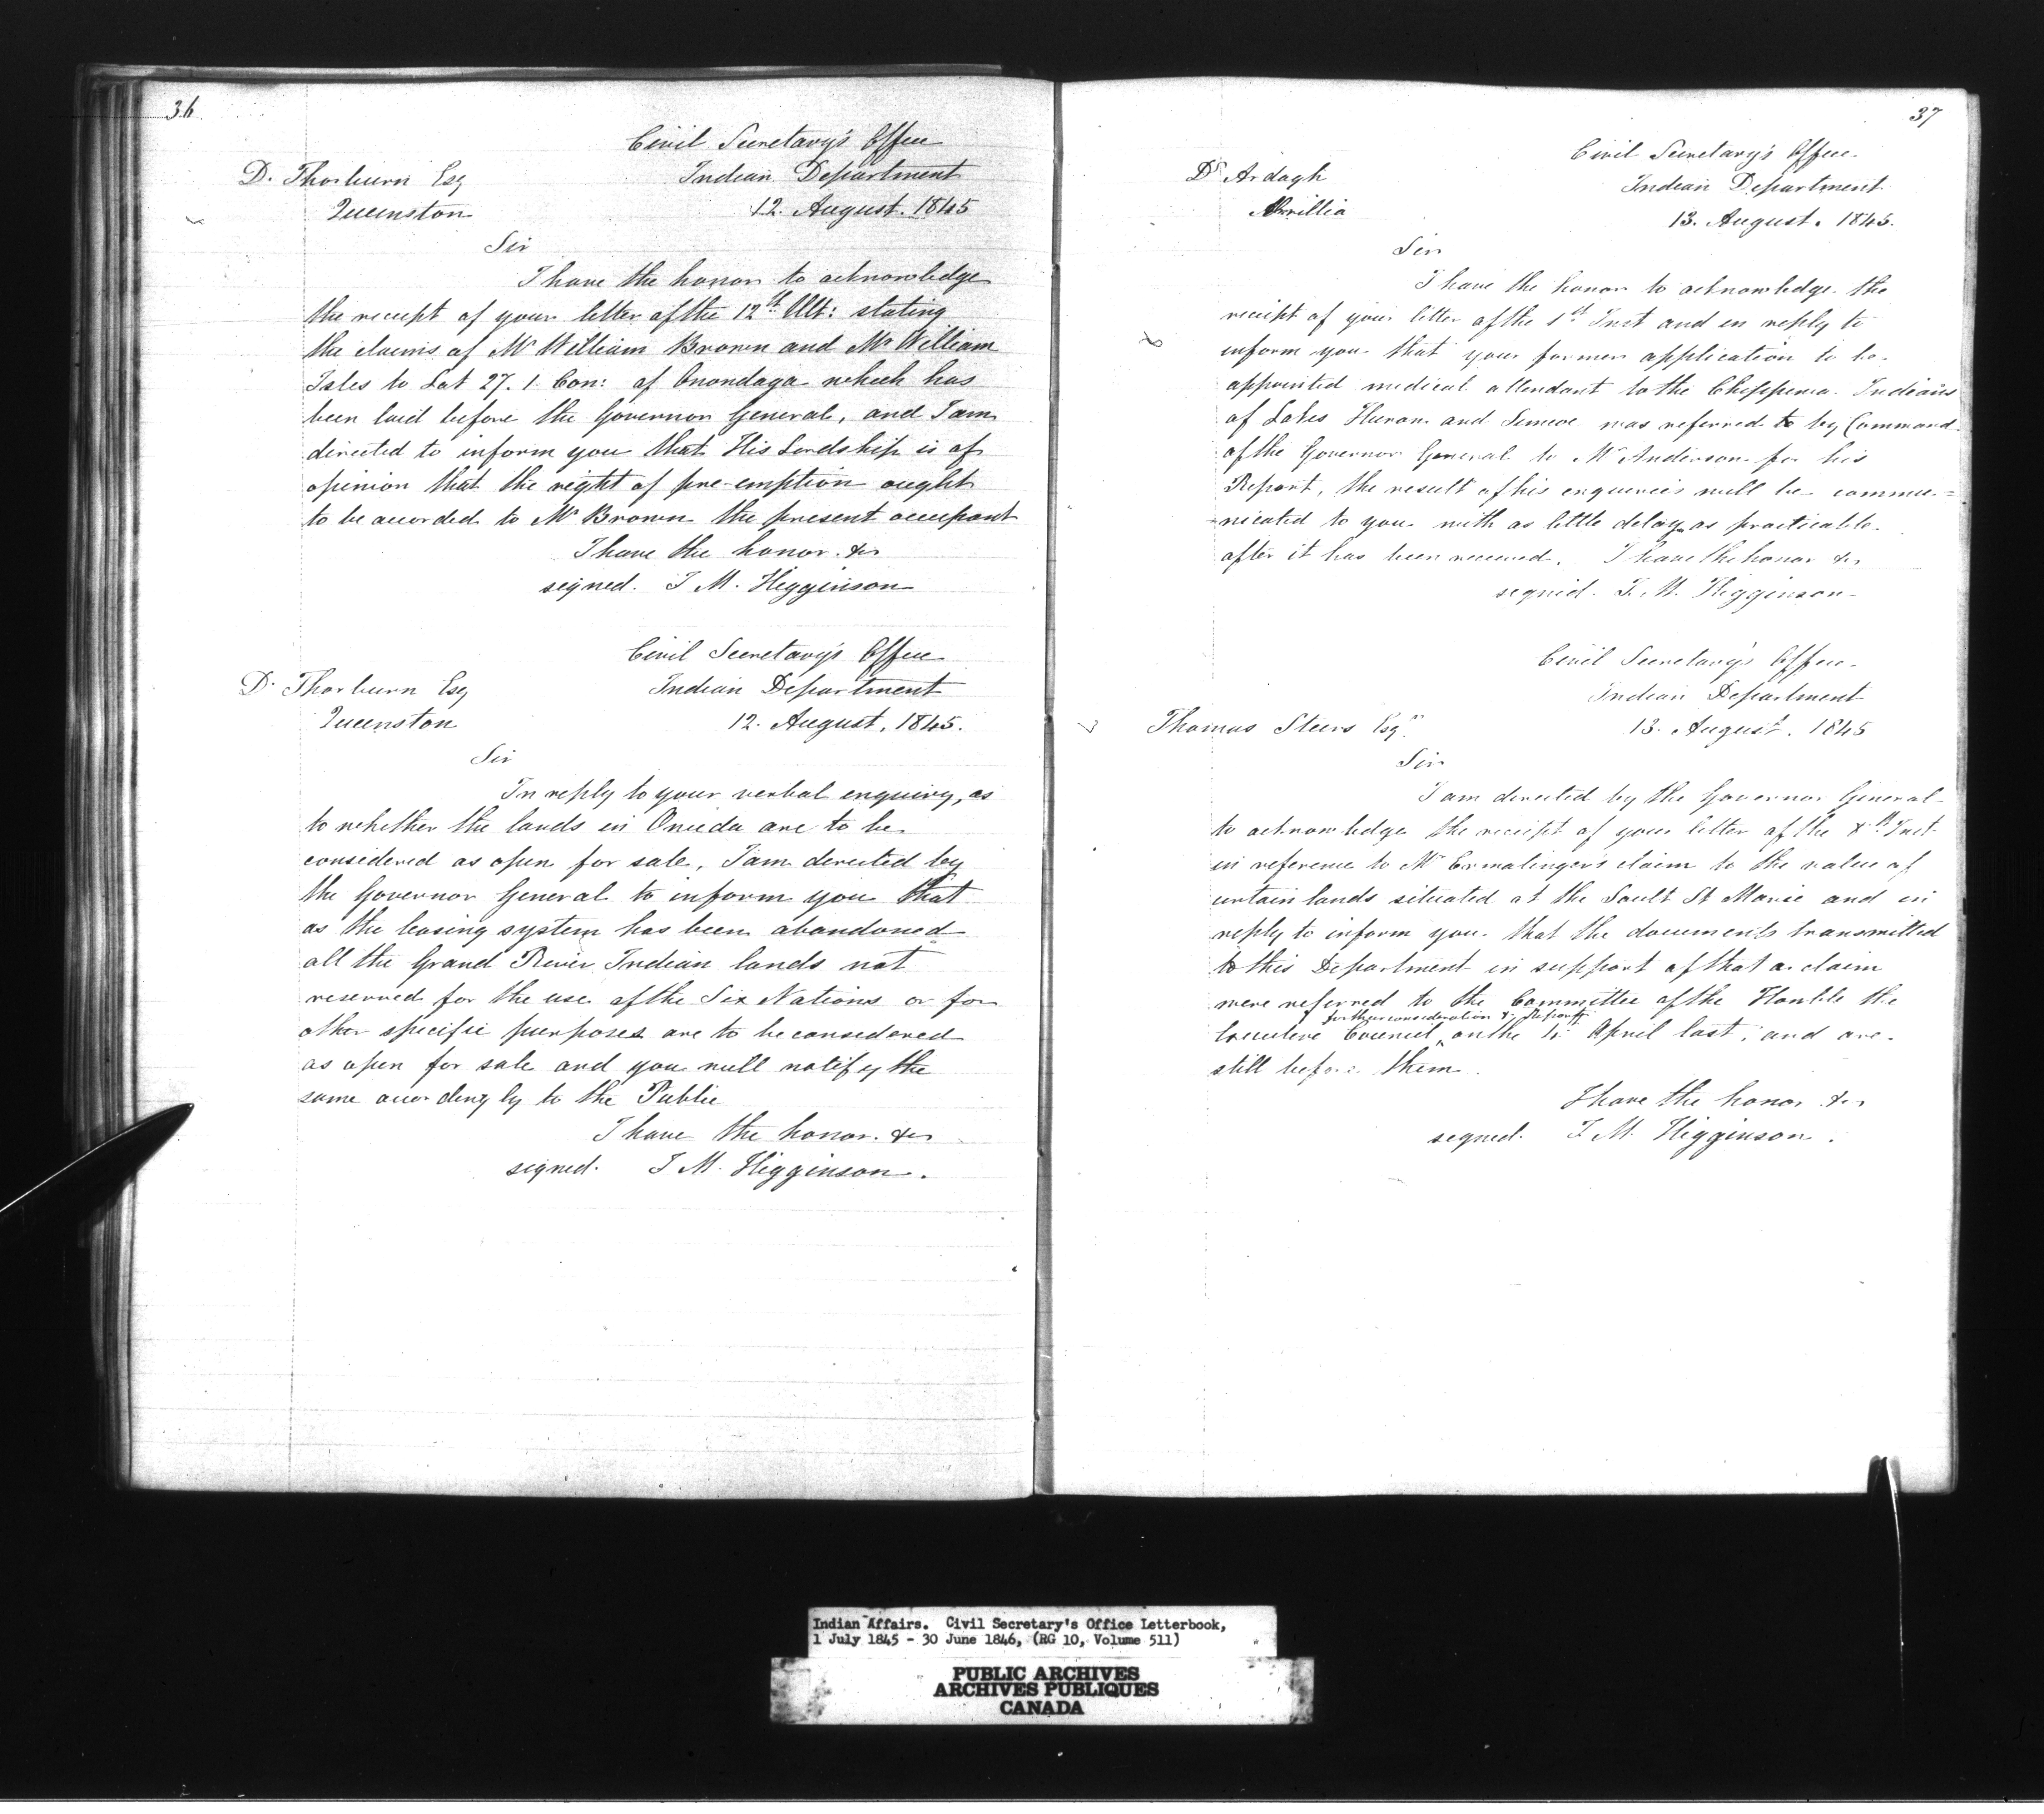 36
Civil Secretary's Office
D. Thorburn Esq
Indian Department
Queenston
12. August. 1845
Sir
I have the honor to acknowledge
the receipt of your letter of the 12th Ult: stating
the claims of Mr William Brown and Mr William
Isles to Lot 27. 1. Con: of Onondaga which has
been laid before the Governor General, and I am
directed to inform you that His Lordship is of
opinion that the right of pre-emption ought
to be accorded to Mr Brown the present occupant
I have the honor. &c
signed. J M. Higginson
Civil Secretary's Office
D. Thorburn Esq
Indian Department
Queenston
12. August. 1845.
Sir
In reply to your verbal enquiry, as
to whether the lands in Oneida are to be
considered as open for sale, I am directed by
the Governor General to inform you that
as the leasing system has been abandoned
all the Grand River Indian lands not
reserved for the use of the Six Nations or for
other specific purposes are to be considered
as open for sale and you will notify the
same accordingly to the Public
I have the honor. &c
signed. J M. Higginson.
37
Civil Secretary's Office.
Dr Ardagh
Indian Department
Orillia
13. August. 1845.
Sir
I have the honor to acknowledge the
receipt of your letter of the 1st Inst and in reply to
inform you that your former application to be
appointed medical attendant to the Chippewa Indians
of Lakes Huron and Simcoe was referred to by Command
of the Governor General to Mr Anderson for his
Report, the result of his enquiries will be commu=
nicated to you with as little delay as practicable
after it has been received. I have the honor &c
signed. J. M. Higginson
Civil Secretary's Office.
Indian Department
Thomas Steers Esqr
13. August. 1845
Sir
I am directed by the Governor General
to acknowledge the receipt of your letter of the Inst
in reference to Mr Ermatinger's claim to the value of
certain lands situated at the Sault St Marie and in
reply to inform you that the documents transmitted
to this Department in support of that a claim
were referred to the Committee of the Honble the
for their consideration & Report
Executive Council, on the April last, and are
still before them.
I have the honor &c
signed. J M. Higginson.
Indian Affairs. Civil Secretary's Office Letterbook,
1 July 1845 - 30 June 1846, (RG 10, Volume 511)
PUBLIC ARCHIVES
ARCHIVES PUBLIQUES
CANADA